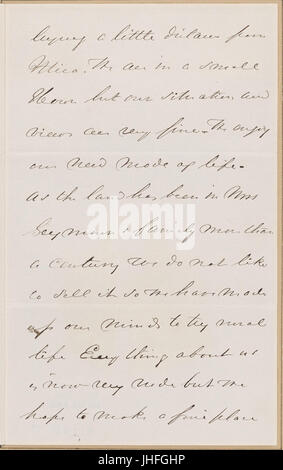 buying a little distance from
Utica. We are in a small
House but our situation and
views are very fine. We enjoy
our new mode of life.
As the land has been in Mrs
Seymours family more than
a century we do not like
to sell it so we have made
up our minds to try rural
life Every thing about us
is now very rude but we
hope to make a fine place
alamy
Image ID: JHFGHP
www.alamy.com